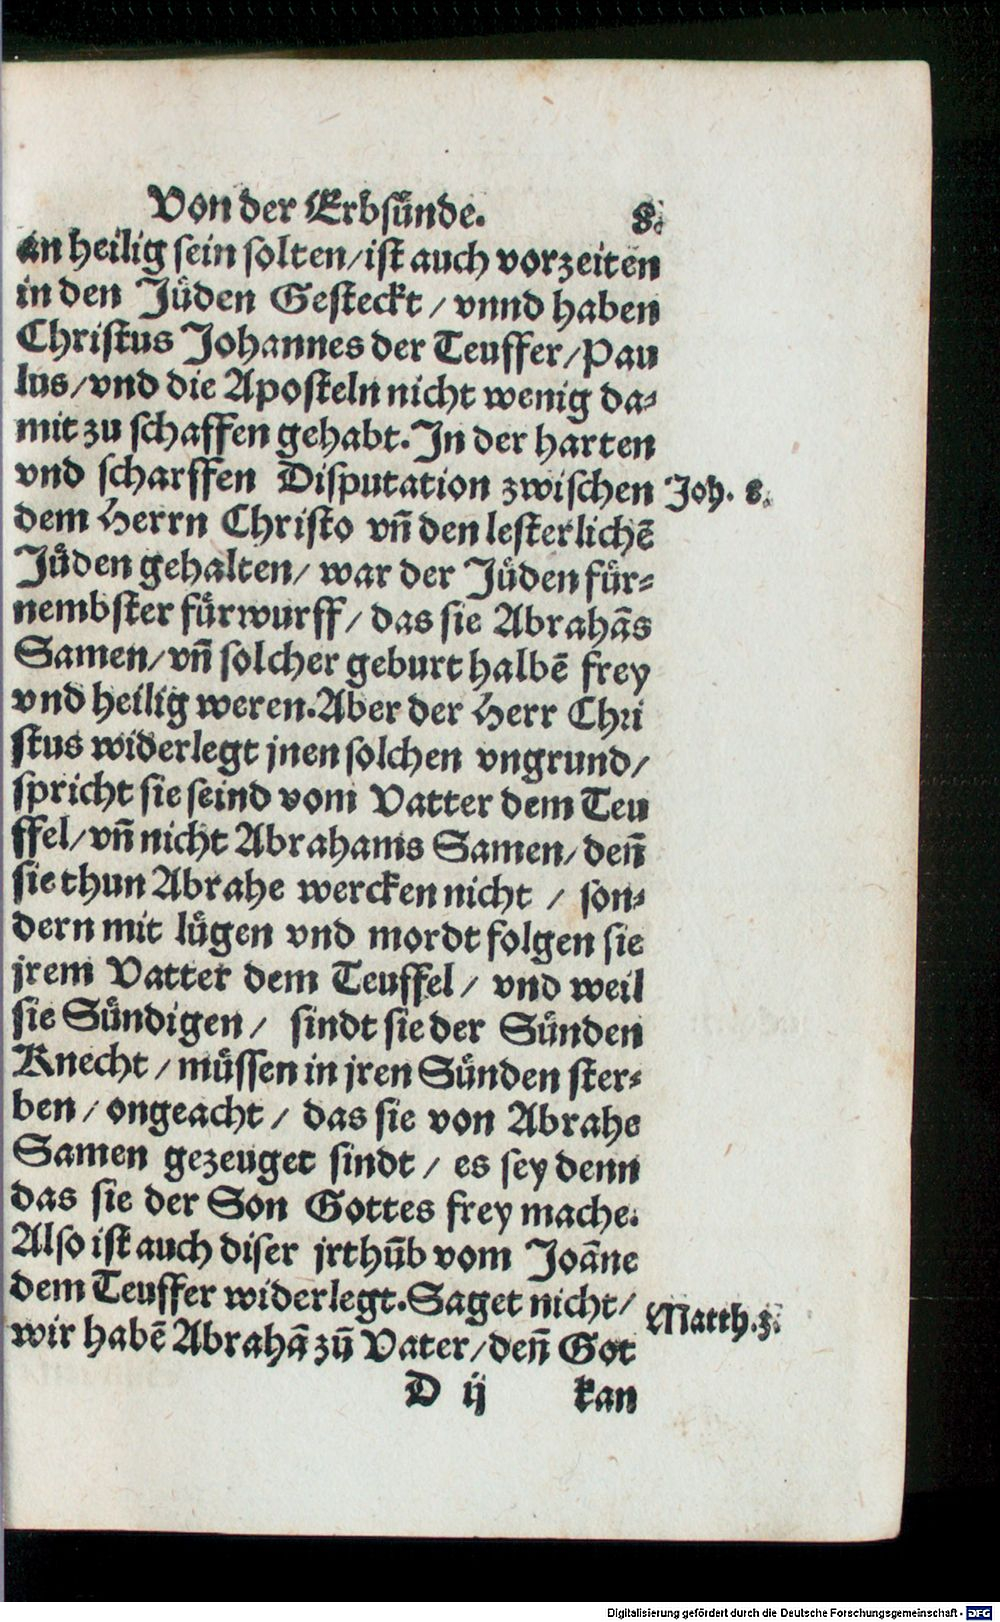 Von der Erbsünde. 8.
an heilig sein solten/ist auch vorzeiten
in den Jüden Gesteckt / vnnd haben
Christus Johannes der Teuffer/Pau
lus/vnd die Aposteln nicht wenig da-
mit zu schaffen gehabt. In der harten
vnd scharffen Disputation zwischen
Joh. 8.
dem Herrn Christo vñ den lesterlichẽ
Jüden gehalten/ war der Jüden für-
nembster fürwurff/ das sie Abrahãs
Samen/vñ solcher geburt halbẽ frey
vnd heilig weren. Aber der Herr Chri
stus widerlegt jnen solchen vngrund/
spricht sie seind vom Vatter dem Teu
ffel/vñ nicht Abrahams Samen/deñ
sie thun Abrahe wercken nicht / son-
dern mit lügen vnd mordt folgen sie
jrem Vatter dem Teuffel/ vnd weil
sie Sündigen/ sindt sie der Sünden
Knecht/müssen in jren Sünden ster-
ben/ongeacht/ das sie von Abrahe
Samen gezeuget sindt/ es sey denn
das sie der Son Gottes frey mache.
Also ist auch diser jrthũb vom Joãne
dem Teuffer widerlegt. Saget nicht/
Matth.3.
wir habẽ Abrahã zũ Vater/deñ Got
D ij kan
Digitalisierung gefördert durch die Deutsche Forschungsgemeinschaft - DFG